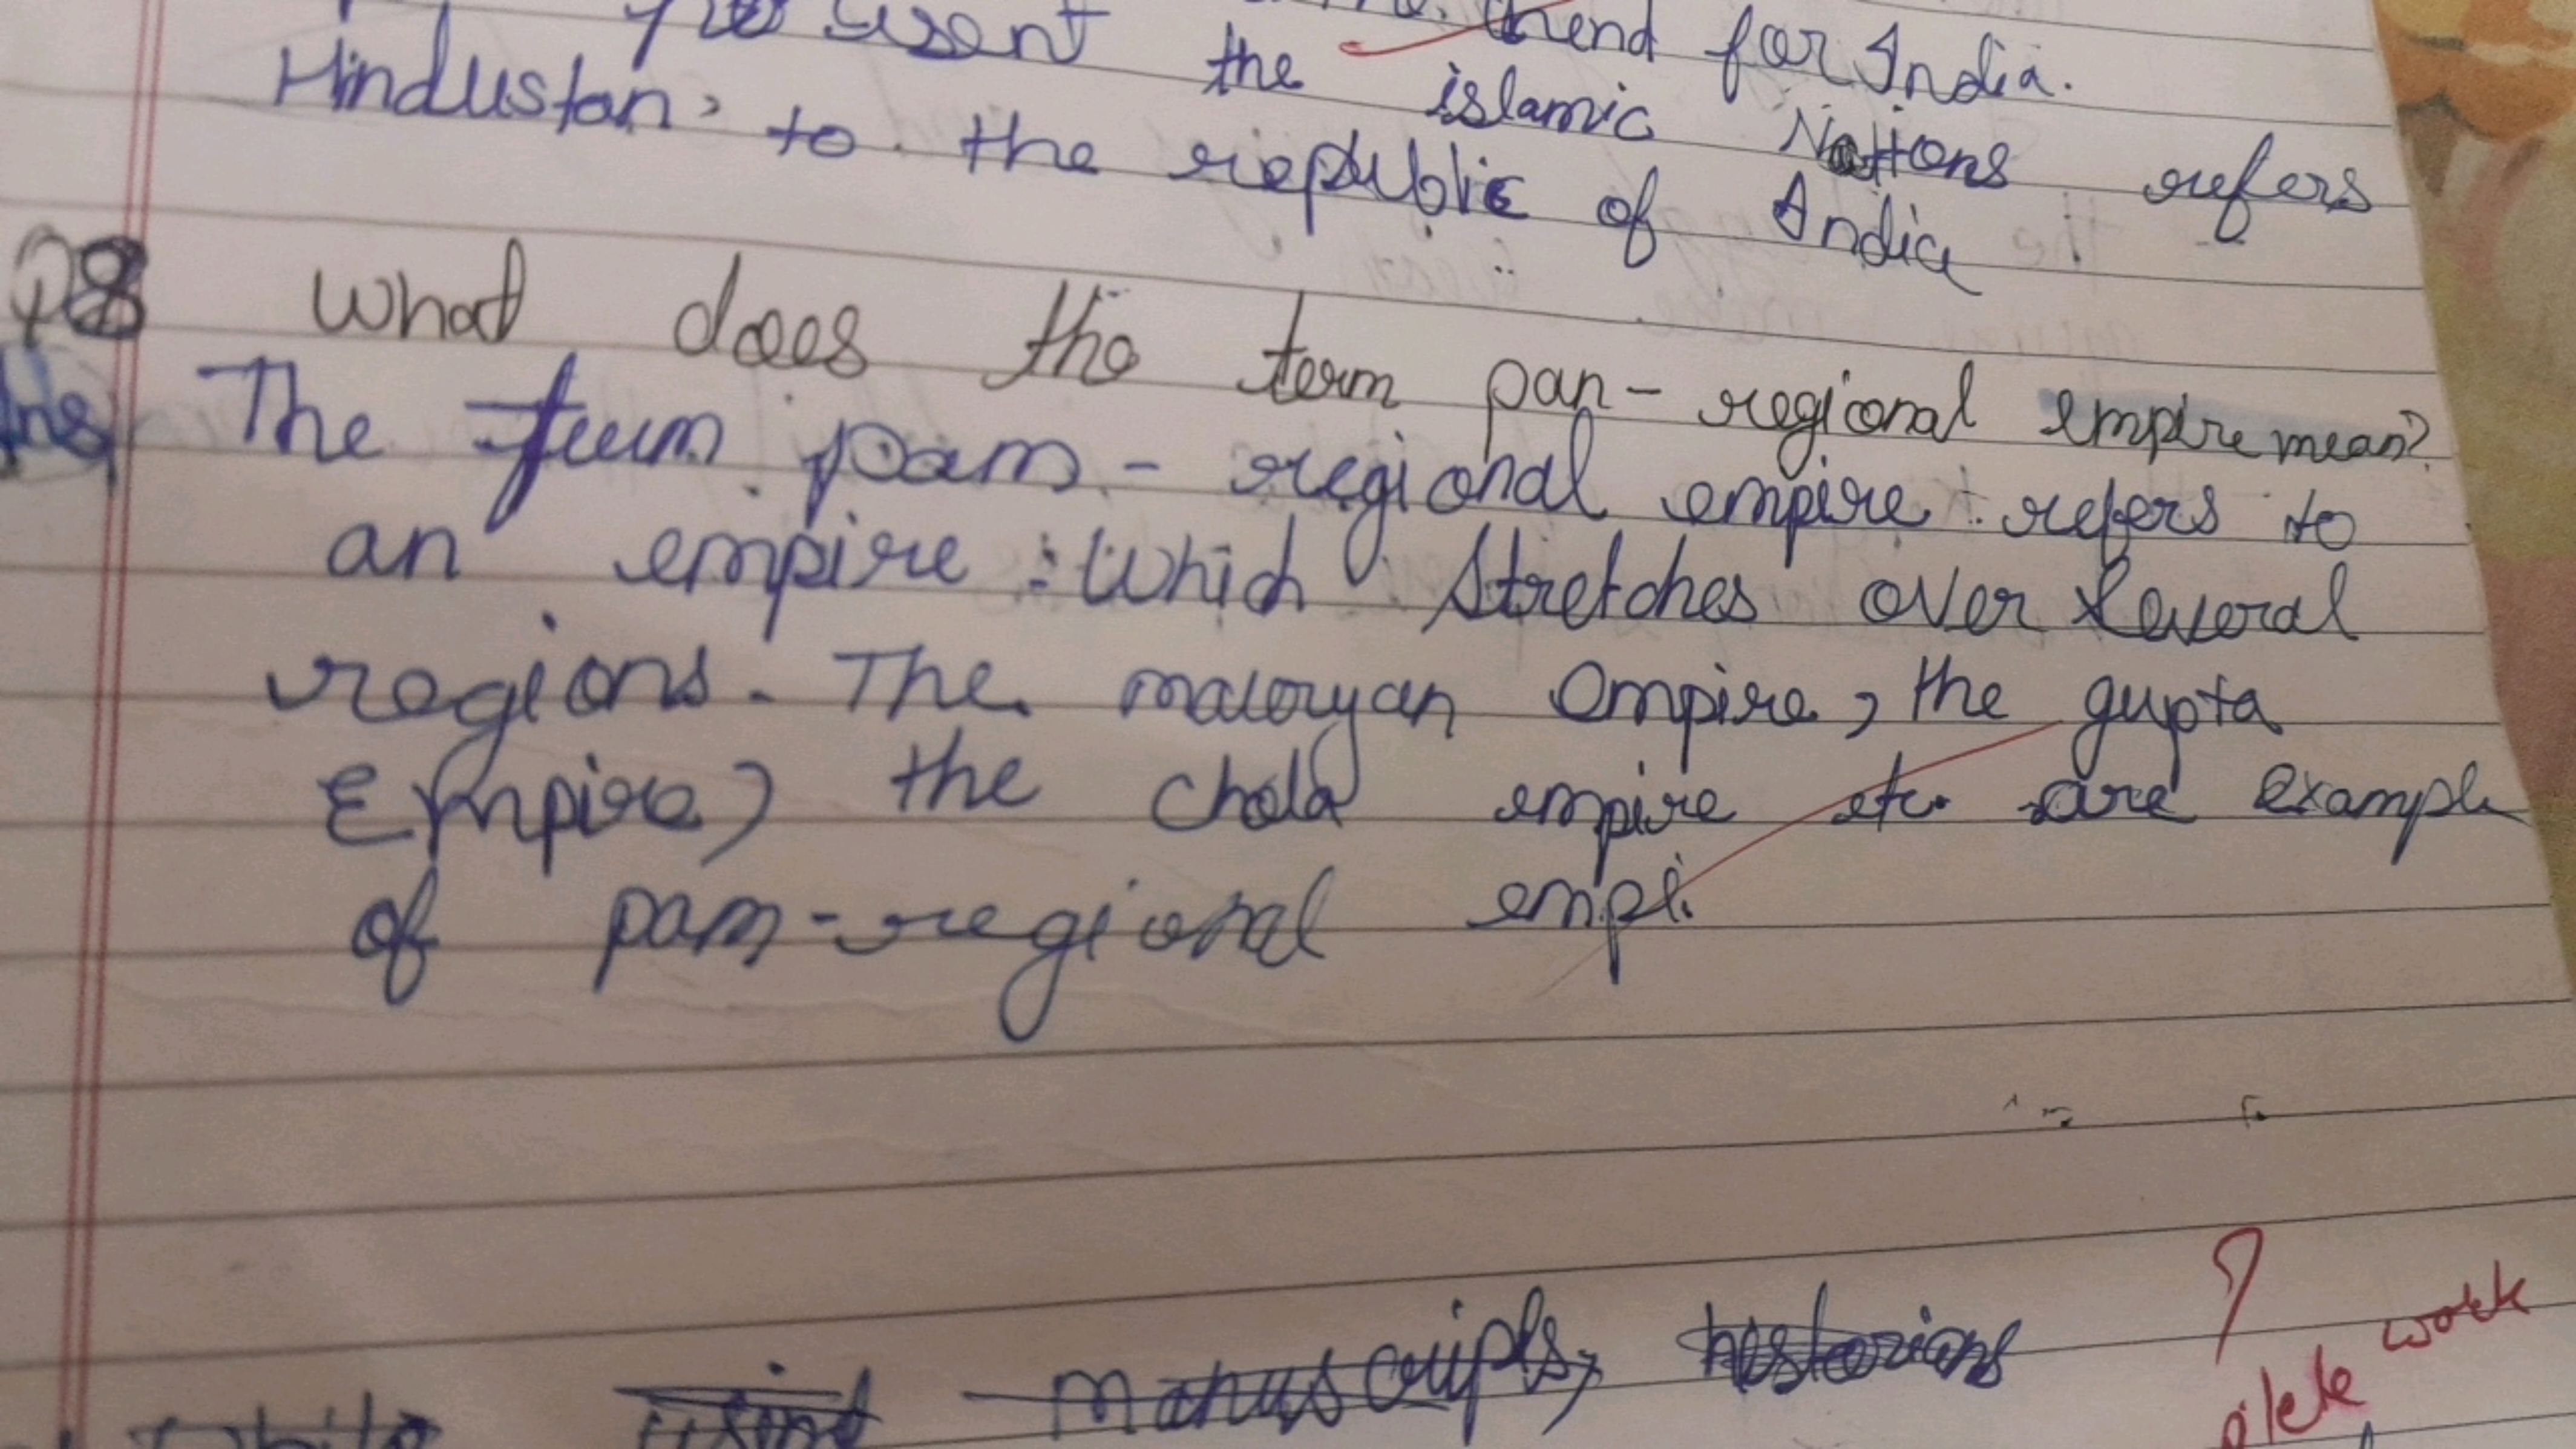 present the trend for India.
Hindustan, to the republic of India
islamic Nations refers
Q8 What does the term pan-regional empire mean?
Ans The term pam-regional empire refers to
an empire which stretches over several
regions. The mauryan Empire, the gupta
Empire, the Chola empire etc. are example
of pam-regional empi.
?
work
while using manuscripts, historians